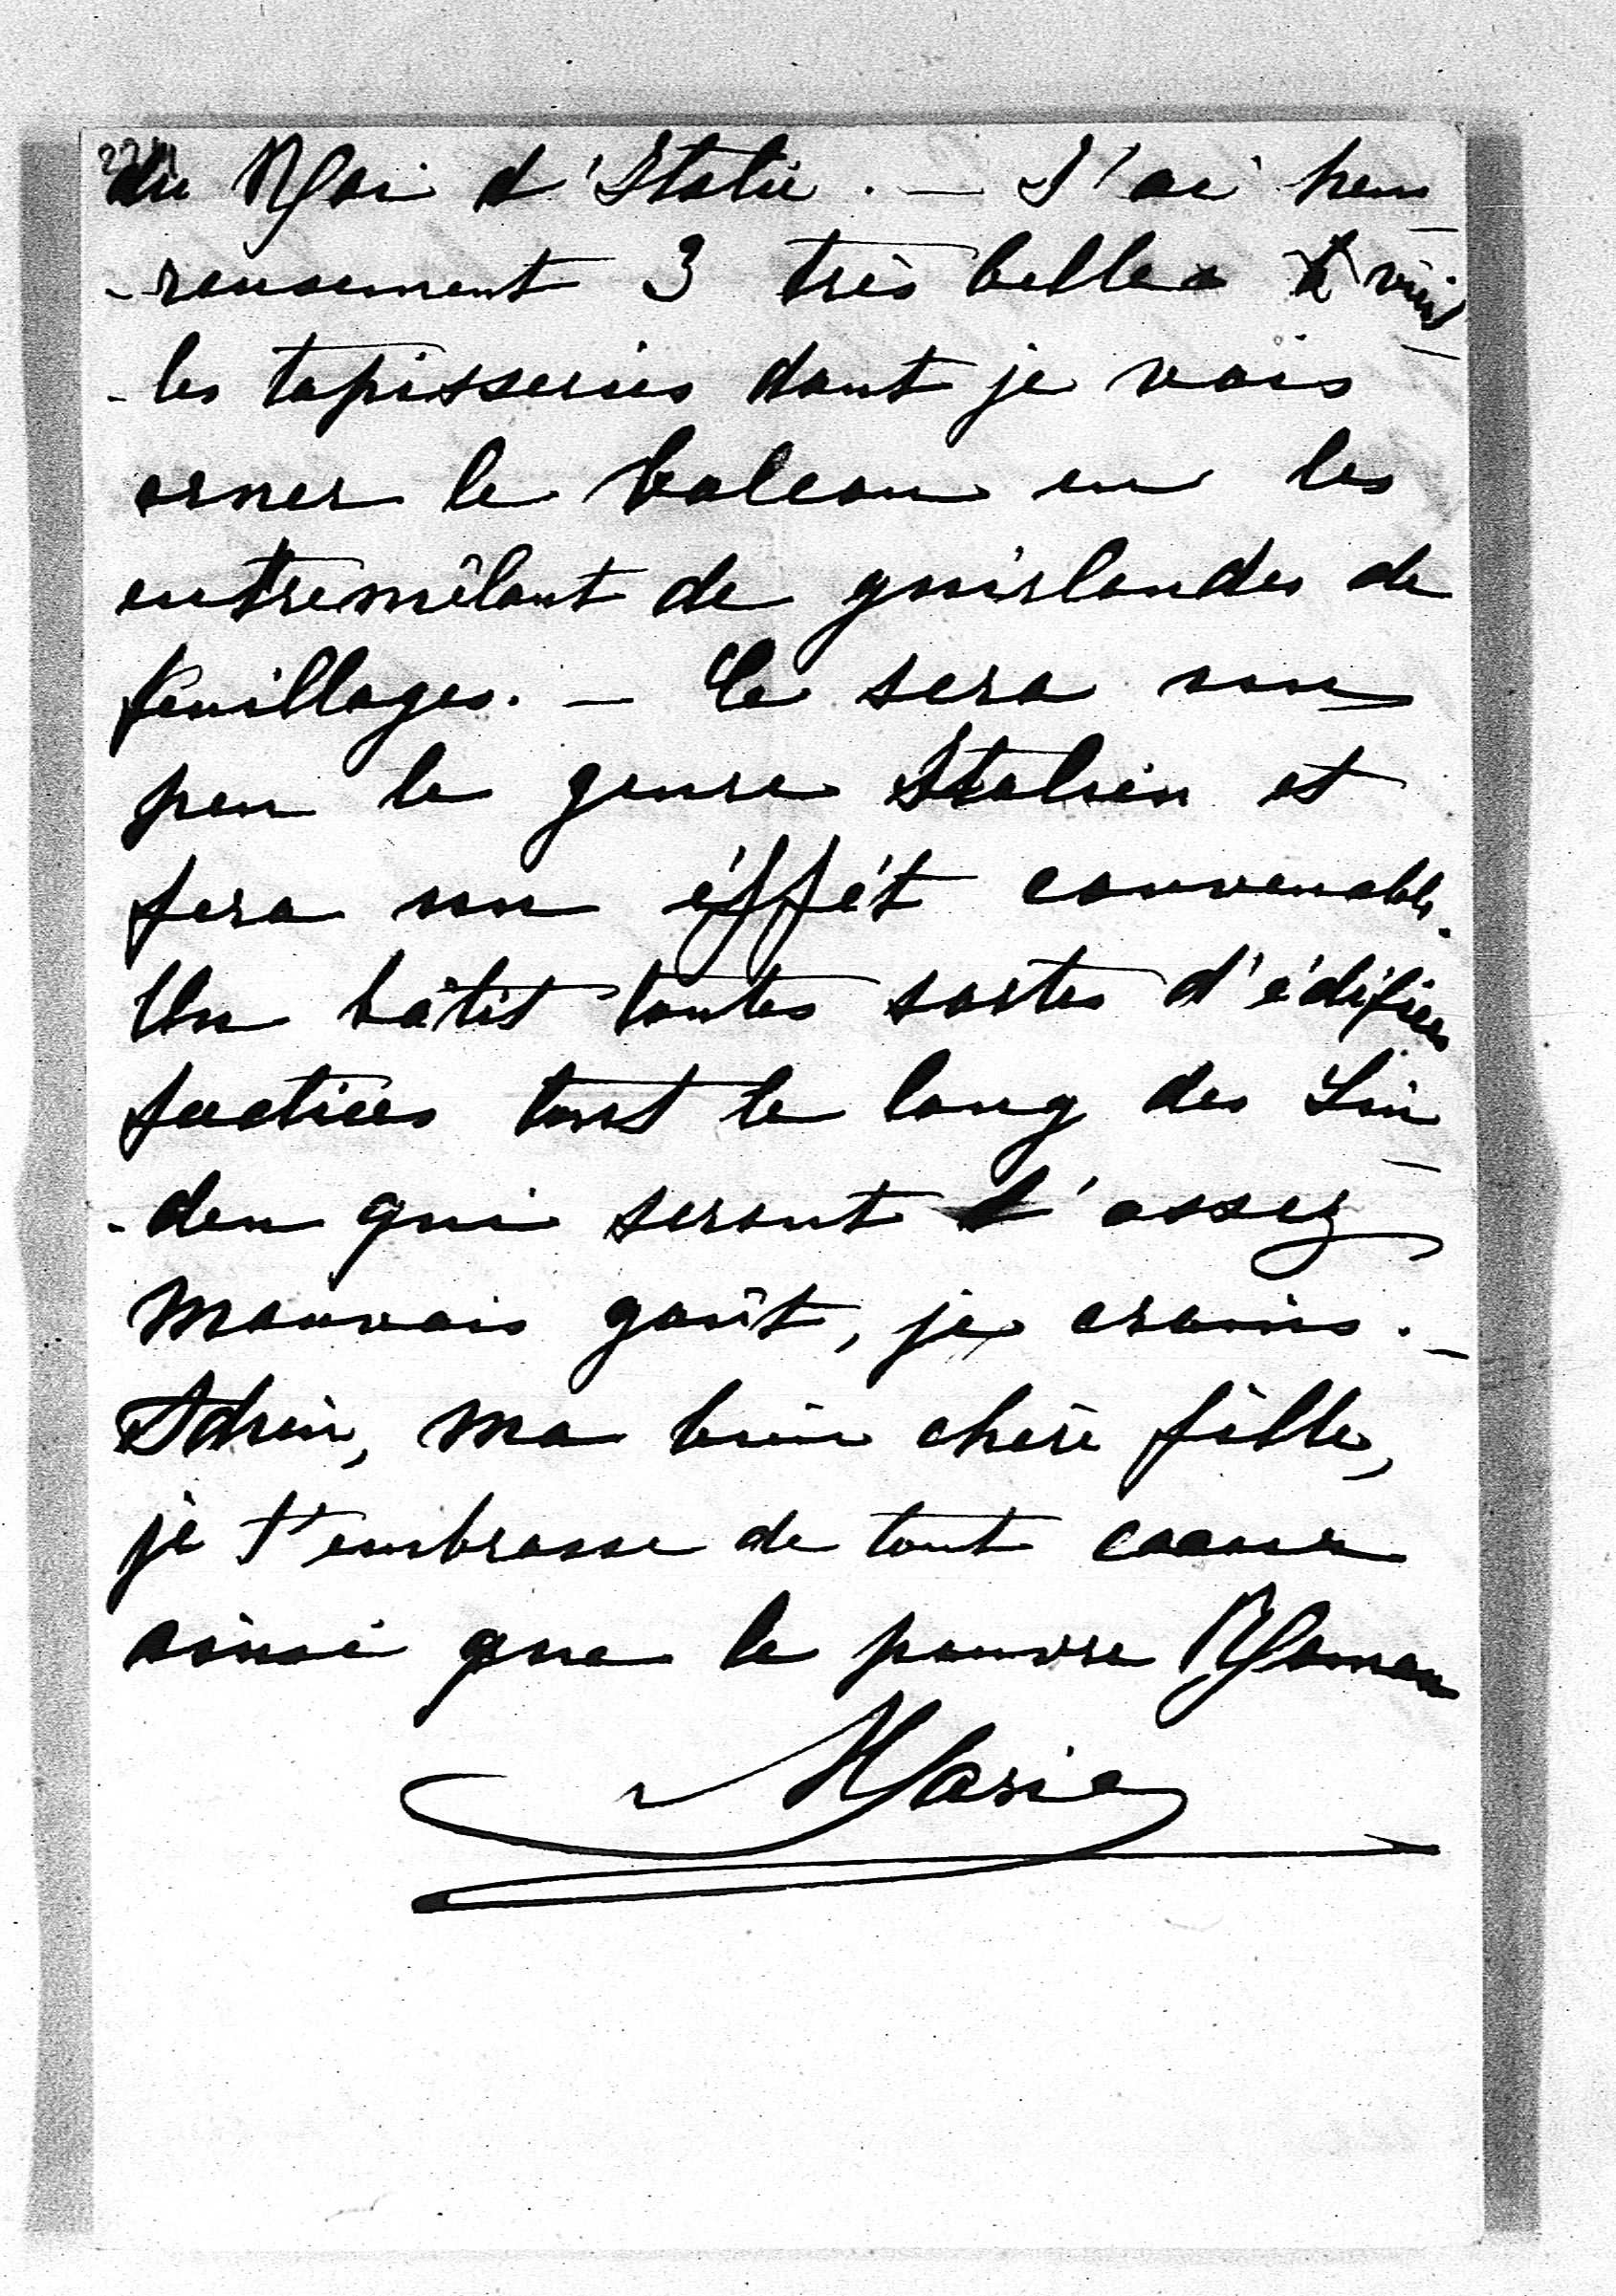 du Roi d'Italie. — J'ai heu-
-reusement 3 très belles & viei-
-les tapisseries dont je vais
orner le balcon en les
entremêlant de guirlandes de
feuillages. — Ce sera un
peu le genre Italien et
fera un éffét convenable.
On bâtit toutes sortes d'édifices
factices tout le long des Lin-
-den qui seront d'assez
mauvais goût, je crains. —
Adieu, ma bien chère fille,
je t'embrasse de tout coeur
ainsi que le pauvre Roman
Marie